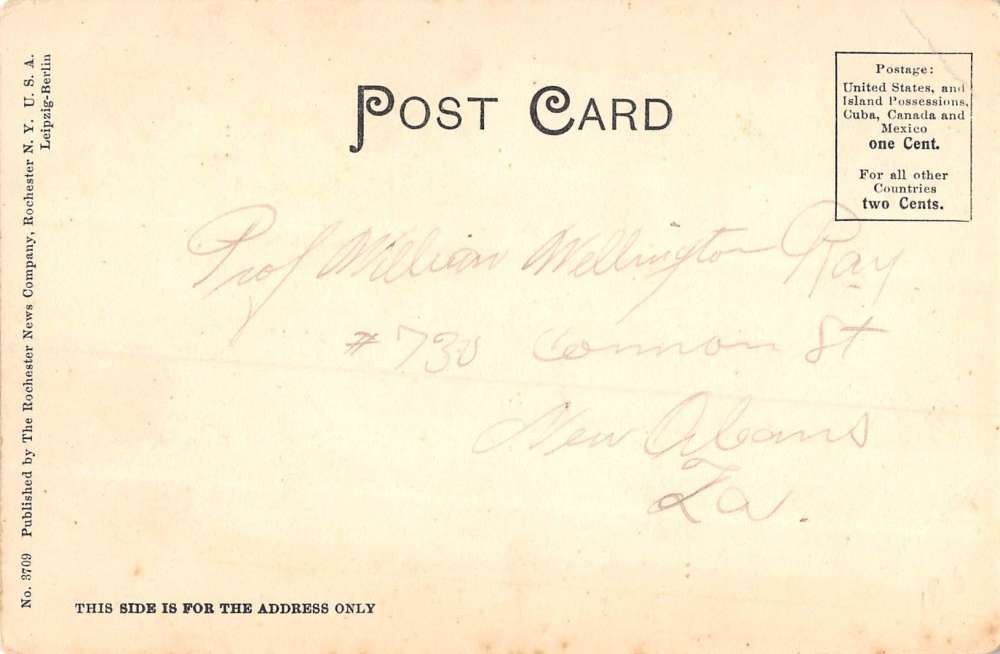 POST CARD
Postage:
United States, and
Island Possessions,
Cuba, Canada and
Mexico
one Cent.
For all other
Countries
two Cents.
Prof William Wellington Ray
#730 Common St
New Orleans
La.
THIS SIDE IS FOR THE ADDRESS ONLY
No. 3709 Published by The Rochester News Company, Rochester N. Y. U. S. A.
Leipzig-Berlin